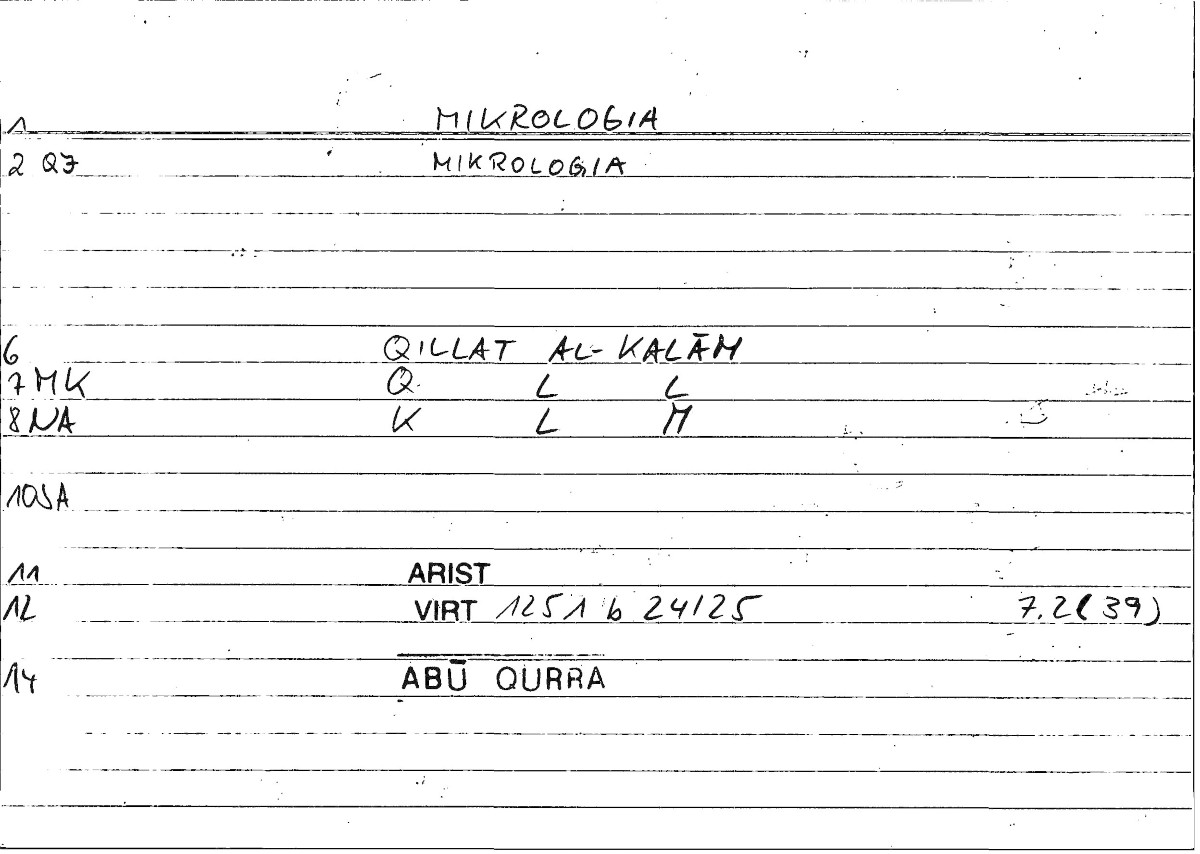 1 MIKROLOGIA
2 QZ MIKROLOGIA
6 QILLAT AL-KALĀM
7 MK Q L L
8 NA K L M
10 SA
11 ARIST
12 VIRT 1251 b 24/25 7.2(39)
14 ABŪ QURRA